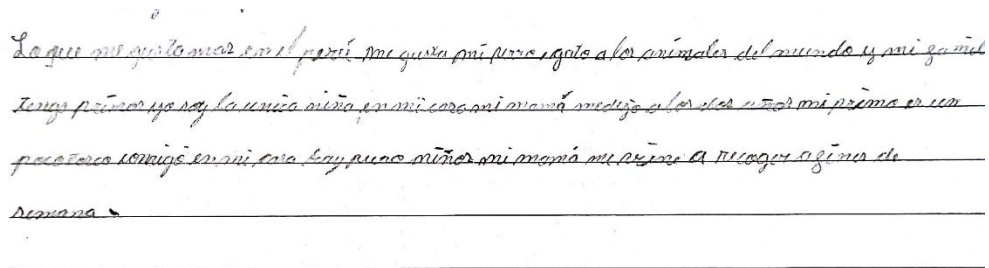 Lo que me gusta mas en el perú me gusta mi perro y gato a los animales del mundo y mi famil
tengo primos yo soy la unica niña en mi casa mi mamá me dejo a los dos años mi primo es un
poco terco comigo en mi casa hay puro niños mi mamá me viene a recoger a fines de
semana.